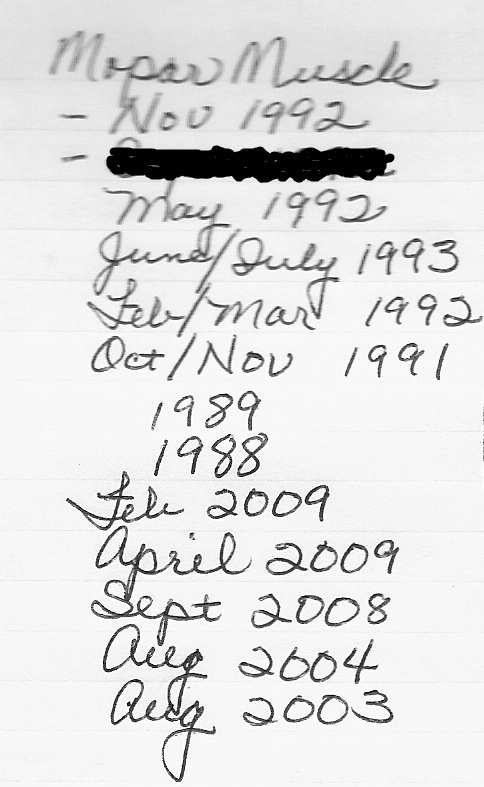 Mopar Muscle
- Nov 1992
-
May 1992
June/July 1993
Feb/Mar 1992
Oct/Nov 1991
1989
1988
Feb 2009
April 2009
Sept 2008
Aug 2004
Aug 2003